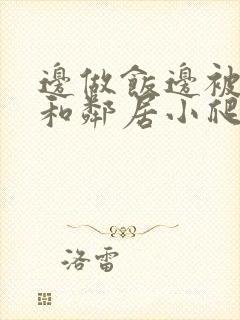 邊做飯邊被
和鄰居小爬
洛雷